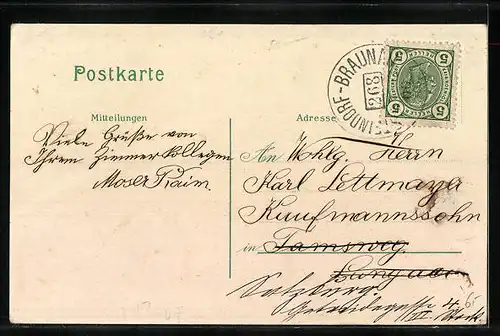 Postkarte
Mitteilungen
Adresse
STEINDORF-BRAUNAU
268
5 5
5 5
Viele Grüße von
Ihrem Zimmerkollegen
Moser Raim.
An Wohlg. Herrn
Karl Lettmayer
Kaufmannssohn
in Tamsweg
Lungau
Salzburg.
Getreidegasse 4.
III. Stock.